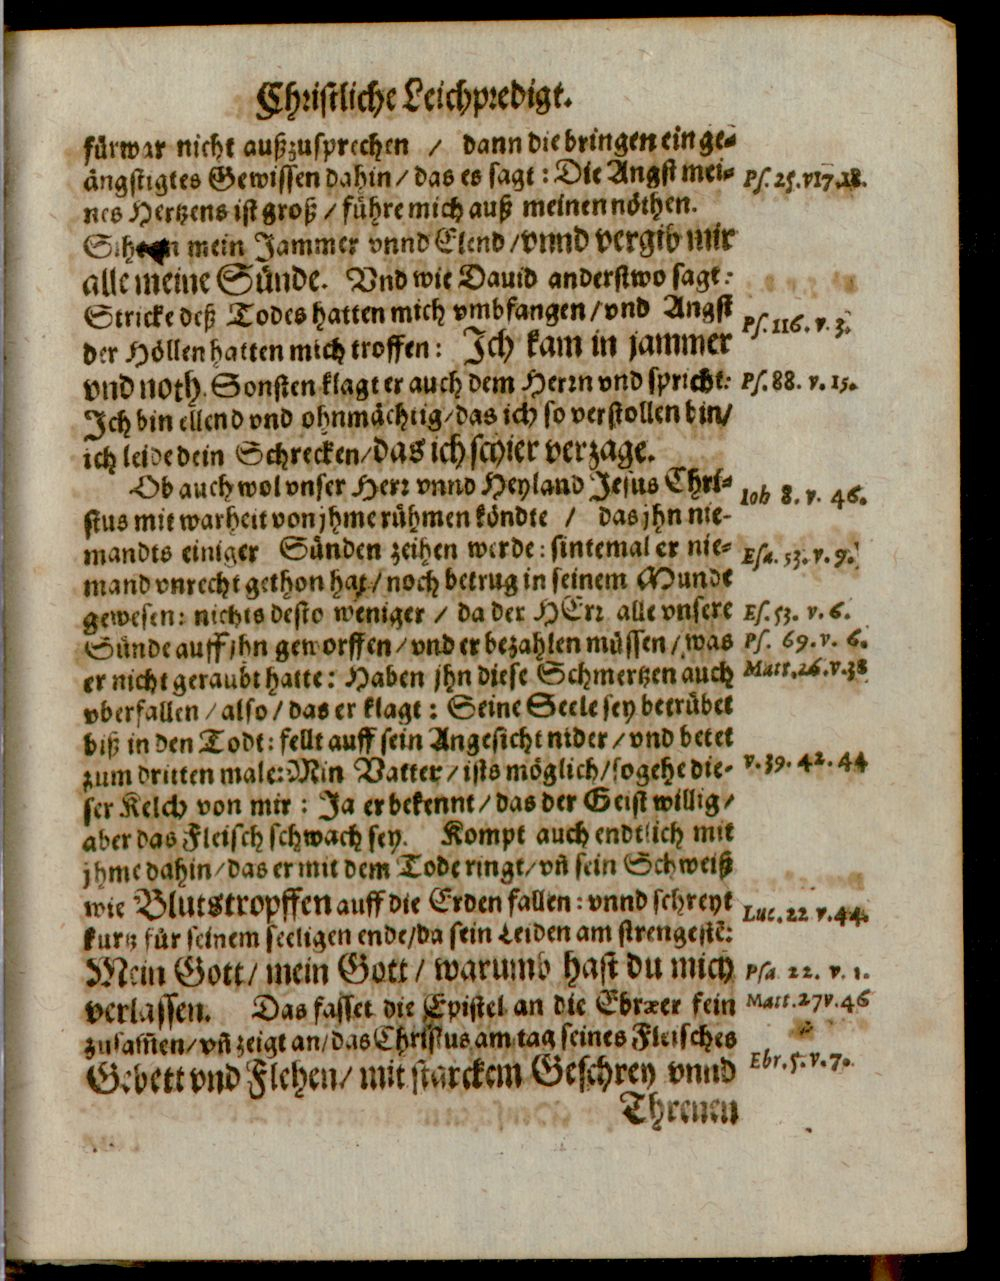 Christliche Leichpredigt.
fürwar nicht außzusprechen / dann die bringen ein ge-
ängstigtes Gewissen dahin / das es sagt : Die Angst mei- Ps. 25. v17.18.
nes Hertzens ist groß / führe mich auß meinen nöthen.
mein Jammer vnnd Elend / vnnd vergib mir
alle meine Sünde. Vnd wie Dauid anderstwo sagt:
Stricke deß Todes hatten mich vmbfangen / vnd Angst
der Höllen hatten mich troffen: Ich kam in jammer Ps. 116. v. 3.
vnd noth. Sonsten klagt er auch dem Herrn vnd spricht: Ps. 88. v. 15.
Ich bin ellend vnd ohnmächtig / das ich so verstollen bin /
ich leide dein Schrecken / das ich schier verzage.
Ob auch wol vnser Herr vnnd Heyland Jesus Chri- Iob 8. v. 46.
stus mit warheit von jhme rühmen köndte / das jhn nie-
mandts einiger Sünden zeihen werde : sintemal er nie- Esa. 53. v. 9.
mand vnrecht gethon hat / noch betrug in seinem Munde
gewesen : nichts desto weniger / da der HErr alle vnsere Es. 53. v. 6.
Sünde auff jhn geworffen / vnd er bezahlen müssen / was Ps. 69. v. 6.
er nicht geraubt hatte : Haben jhn diese Schmertzen auch Matt. 26. v. 38
vberfallen / also / das er klagt : Seine Seele sey betrübet
biß in den Todt : fellt auff sein Angesicht nider / vnd betet
zum dritten male: Min Vatter / ists möglich / so gehe die- v. 39. 42. 44
ser Kelch von mir : Ja er bekennt / das der Geist willig /
aber das Fleisch schwach sey. Kompt auch endtlich mit
jhme dahin / das er mit dem Tode ringt / vñ sein Schweiß
wie Blutstropffen auff die Erden fallen : vnnd schreyt Luc. 22 v. 44.
kurtz für seinem seeligen ende / da sein Leiden am strengestẽ:
Mein Gott / mein Gott / warumb hast du mich Psa. 22. v. 1.
verlassen. Das fasset die Epistel an die Ebræer fein Matt. 27 v. 46
zusam̃en / vñ zeigt an / das Christus am tag seines Fleisches
Gebett vnd Flehen / mit starckem Geschrey vnnd Ebr. 5. v. 7.
Threnen